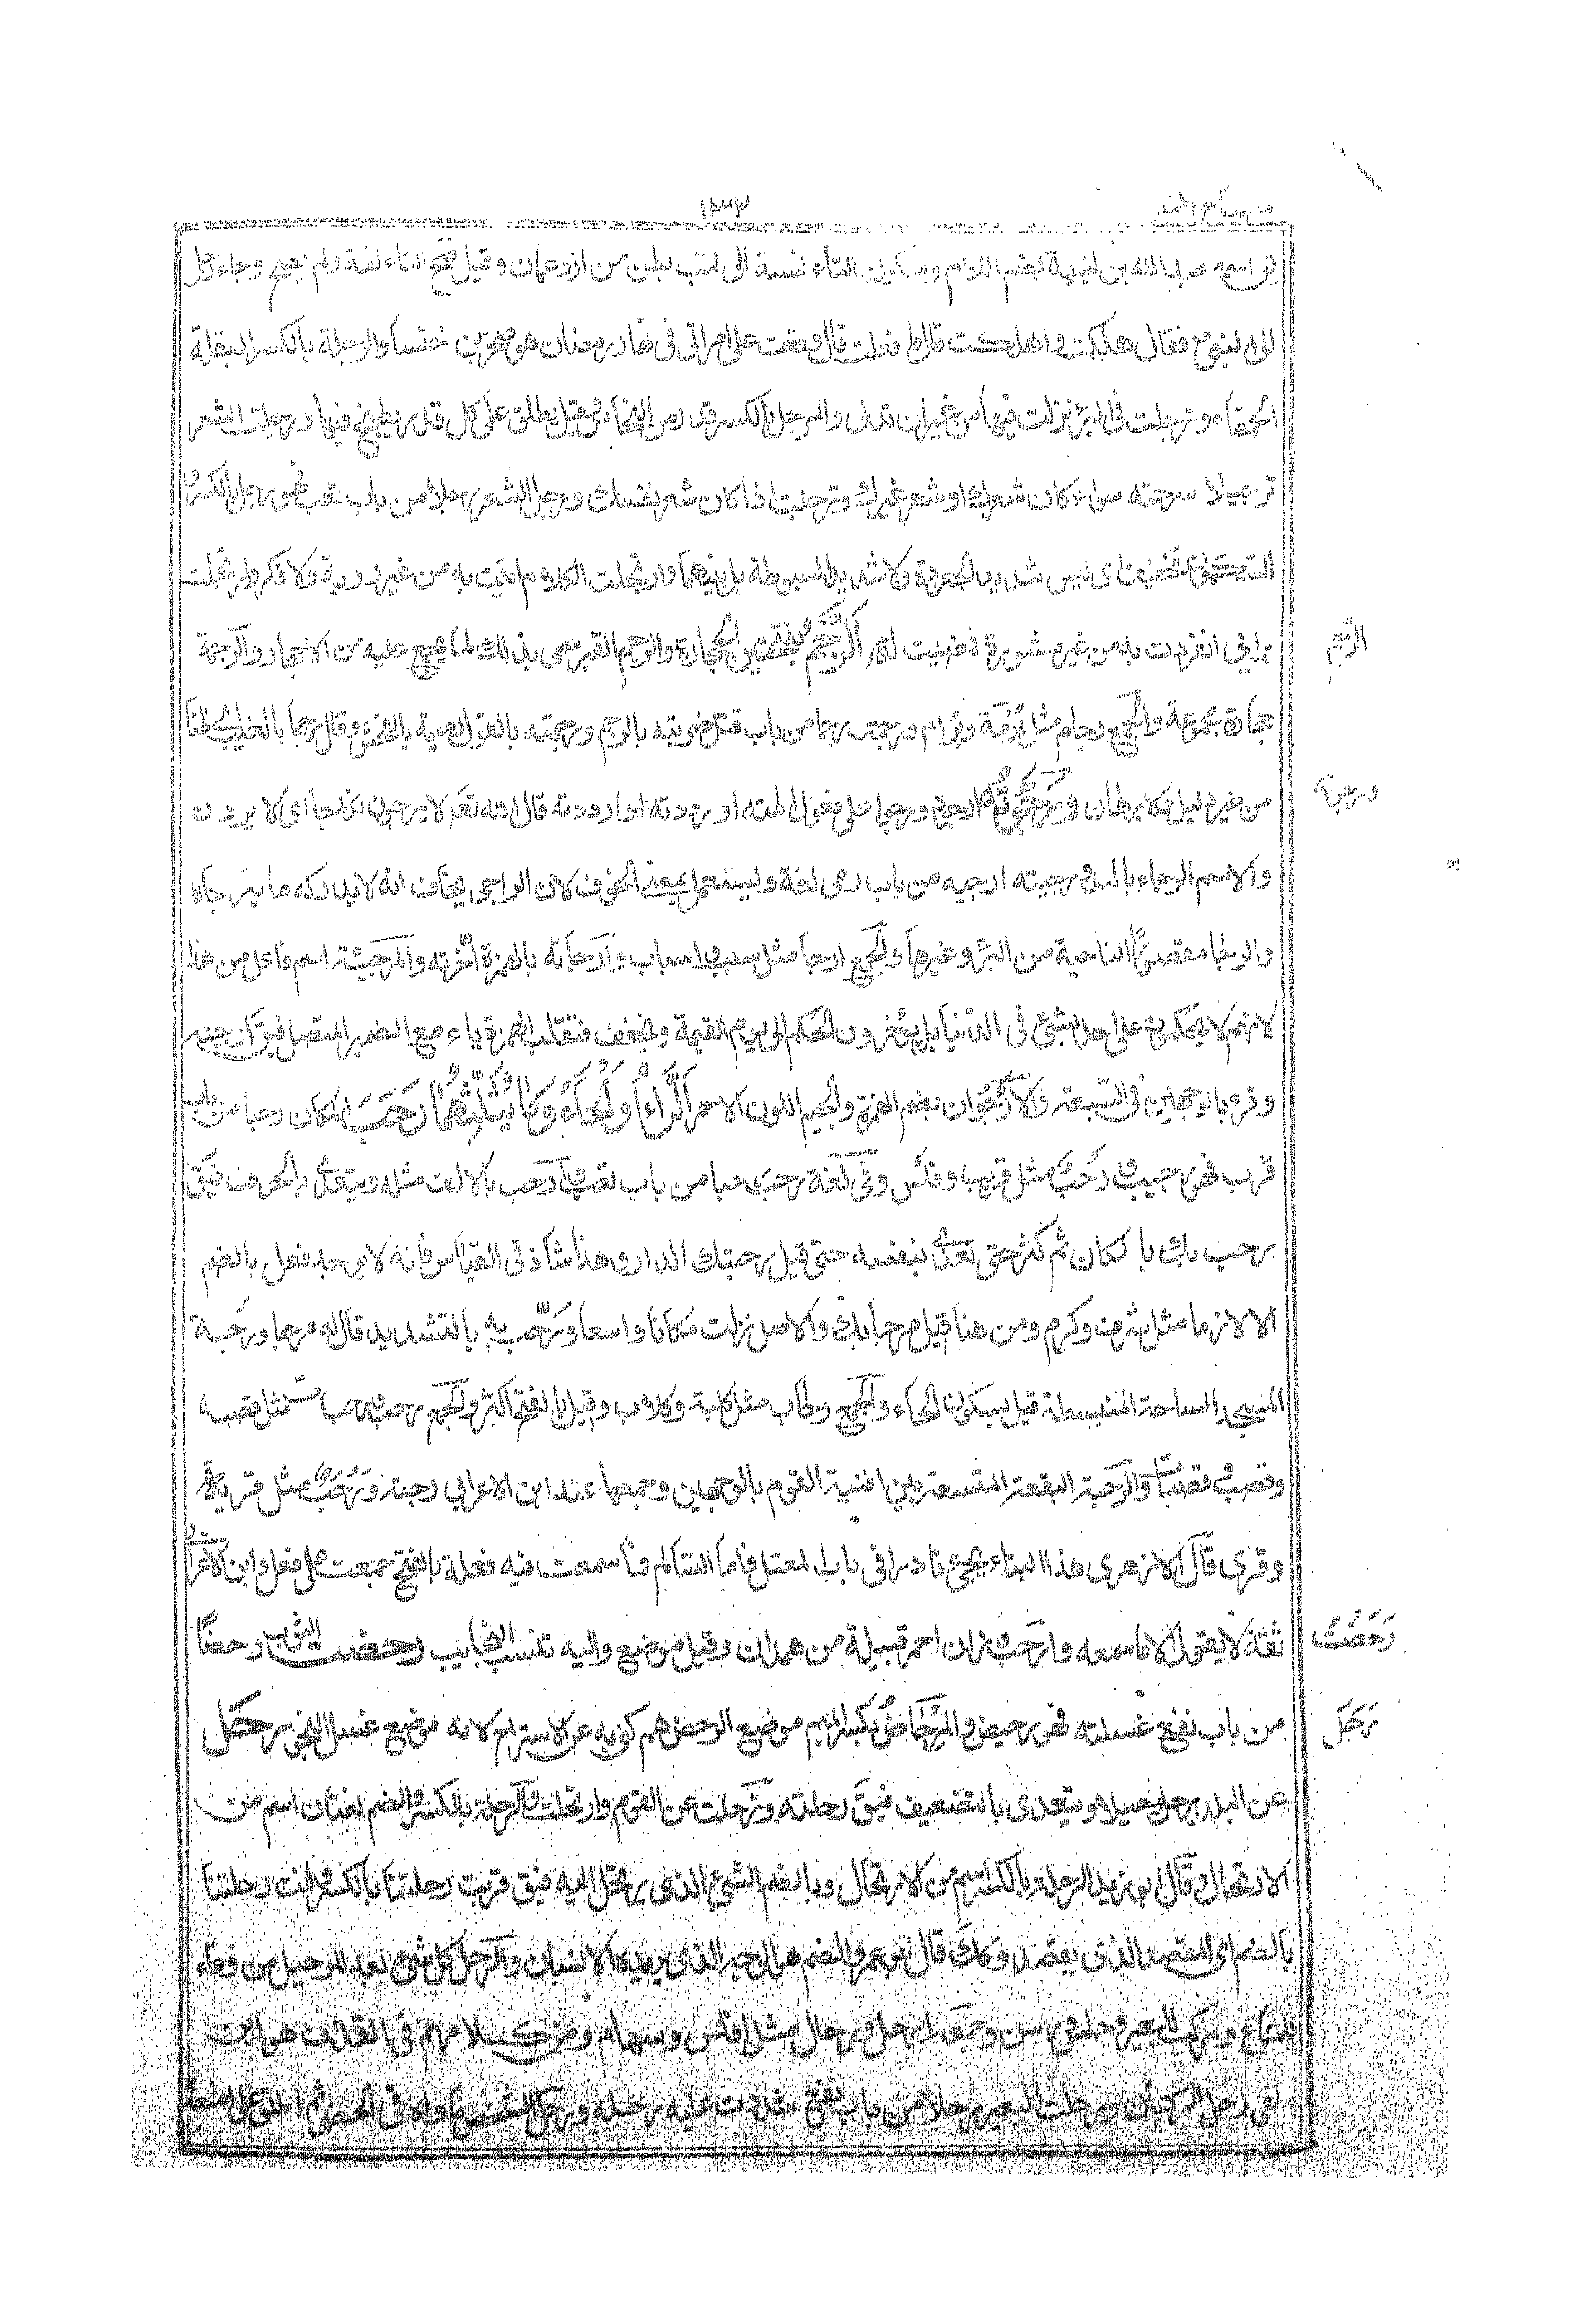 ١٣٣
اسمه عبد الله بن لتبية بضم اللام وسكون التاء نسبة الى لتب بطن من ازد عمان وقيل فتح التاء لغة ولم يصح وجاء رجل
الى النبى ص فقال هلكت واهلكت قال ما فعلت قال وقعت على امراتى فى نهار رمضان هو صخر بن خنسا والرجلة بالكسر البقلة
الحمقاء وترجلت فى البئر نزلت فيها من غير ان تدلى والمرجل بالكسر قدر من النحاس وقيل يطلق على كل قدر يطبخ فيها ورجلت الشعر
ترجيلا سرحته سواء كان شعرك او شعر غيرك وترجلت اذا كان شعر نفسك ورجل الشعر رجلا من باب تعب فهو رجل بالكسر و
السكون تخفيف اى ليس شديد الجعودة ولا شديد السبوطة بل بينهما وارتجلت الكلام اتيت به من غير روية ولا فكر وارتجلت
برايى انفردت به من غير مشورة فمضيت له الرجم بفتحتين الحجارة والرجم القبر سمى بذلك لما يجمع عليه من الاحجار والرجمة
حجارة مجموعة والجمع رجام مثل برمة وبرام ورجمته رجما من باب قتل ضربته بالرجم ورجمته بالقول رميته بالفحش وقال رجما بالغيب اى ظنا
من غير دليل ولا برهان ورجوته ارجوه رجوا على فعول املته او اردته قال الله تعالى لا يرجون نكاحا اى لا يريدون
والاسم الرجاء بالمد ورجيته ارجيه من باب رمى لغة ويستعمل بمعنى الخوف لان الراجى يخاف انه لا يدرك ما يترجاه
والرجا مقصور الناحية من البئر وغيرها والجمع ارجا مثل سبب واسباب وارجأته بالهمزة اخرته والمرجئة اسم فاعل من هذا
لانهم لا يحكمون على احد بشئ فى الدنيا بل يؤخرون الحكم الى يوم القيمة وتخفف فتقلب الهمزة ياء مع الضمير المتصل فيق ارجيته
وقرء بالوجهين فى السبعة والارجوان بضم الهمزة والجيم اللون الاحمر الراء والحاء وما يثلثهما رحب المكان رحبا من باب
قرب فهو رحيب ورحب مثل قريب وفلس وفى لغة رحب رحبا من باب تعب وارحب بالالف مثله ويتعدى بالحرف فيق
رحب بك المكان ثم كثر حتى تعدى بنفسه حتى قيل رحبتك الدار وهذا شاذ فى القياس فانه لا يوجد فعل بالضم
الا لازما مثل شرف وكرم ومن هنا قيل مرحبا بك والاصل نزلت مكانا واسعا ورحب به بالتشديد قال له مرحبا ورحبة
المسجد الساحة المنبسطة قيل بسكون الحاء والجمع رحاب مثل كلبة وكلاب وقيل بالفتح اكثر والجمع رحب ورحبات مثل قصبة
وقصب وقصبات والرحبة البقعة المتسعة بين افنية القوم بالوجهين وجمعها عند ابن الاعرابى رحب مثل قرية
وقرى قال الازهرى هذا البناء يجئ نادرا فى باب المعتل فاما السالم فما سمعت فيه فعلة بالفتح جمعت على فعل وابن الاعرابى
ثقة لا يقول الا ما سمعه وارحب وزان احمر قبيلة من همدان وقيل موضع واليه تنسب النجايب رحضت الثوب رحضا
رحضت
من باب نفع غسلته فهو رحيض والمرحاض بكسر الميم موضع الرحض ثم كنى به عن المستراح لانه موضع غسل النجو رحل
رحل
عن البلد رحيلا ويتعدى بالتضعيف فيق رحلته وترحلت عن القوم وارتحلت والرحلة بالكسر والضم لغتان اسم من
الارتحال وقال ابو زيد الرحلة بالكسر اسم من الارتحال وبالضم الشئ الذى يرتحل اليه فيق قربت رحلتنا بالكسر وانت رحلتنا
بالضم اى المقصد الذى يقصد وكذلك قال ابو عمرو الضم هو الوجه الذى يريده الانسان والرحل كل شئ يعد للرحيل من وعاء
للمتاع ومركب للبعير وحلس ورسن وجمعه ارحل ورحال مثل افلس وسهام ومن كلامهم فى القذف هو ابن
ملقى ارحل الركبان ورحلت البعير رحلا من باب نفع شددت عليه رحله ورحل الشخص ماواه فى الحضر ثم اطلق على امتعة